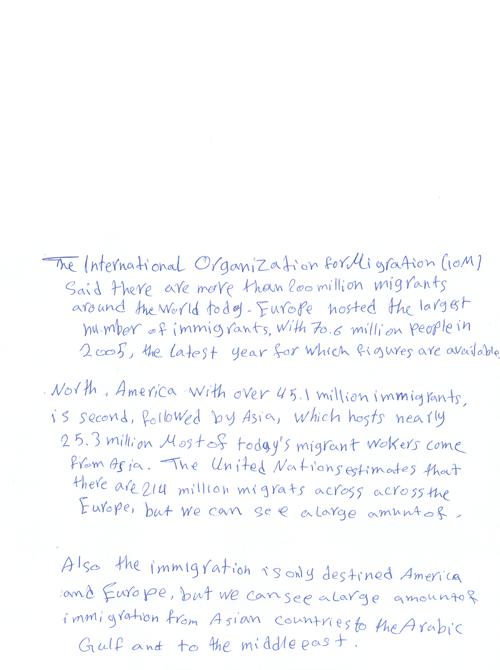 The International Organization for Migration (IOM)
Said there are more than 200 million migrants
around the world today. Europe hosted the largest
number of immigrants, with 70.6 million people in
2005, the latest year for which figures are available
North, America with over 45.1 million immigrants,
is second, followed by Asia, which hosts nearly
25.3 million Most of today's migrant wokers come
from Asia. The United Nations estimates that
there are 214 million migrats across across the
Europe, but we can see a large amunt of.
Also the immigration is only destined America
and Europe, but we can see a large amount of
immigration from Asian countries to the Arabic
Gulf and to the middle east.